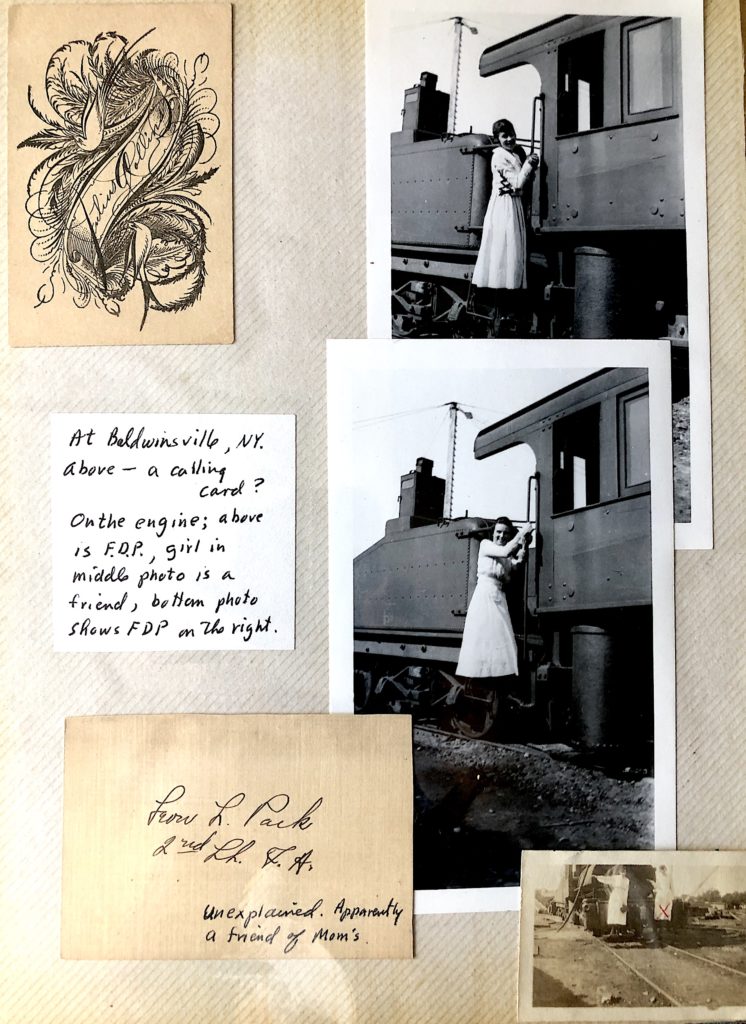 At Baldwinsville, NY.
above – a calling
card?
On the engine; above
is F.D.P., girl in
middle photo is a
friend, bottom photo
shows FDP on the right.
L. Park
2nd Lt. F. A.
Unexplained. Apparently
a friend of Mom's.
X